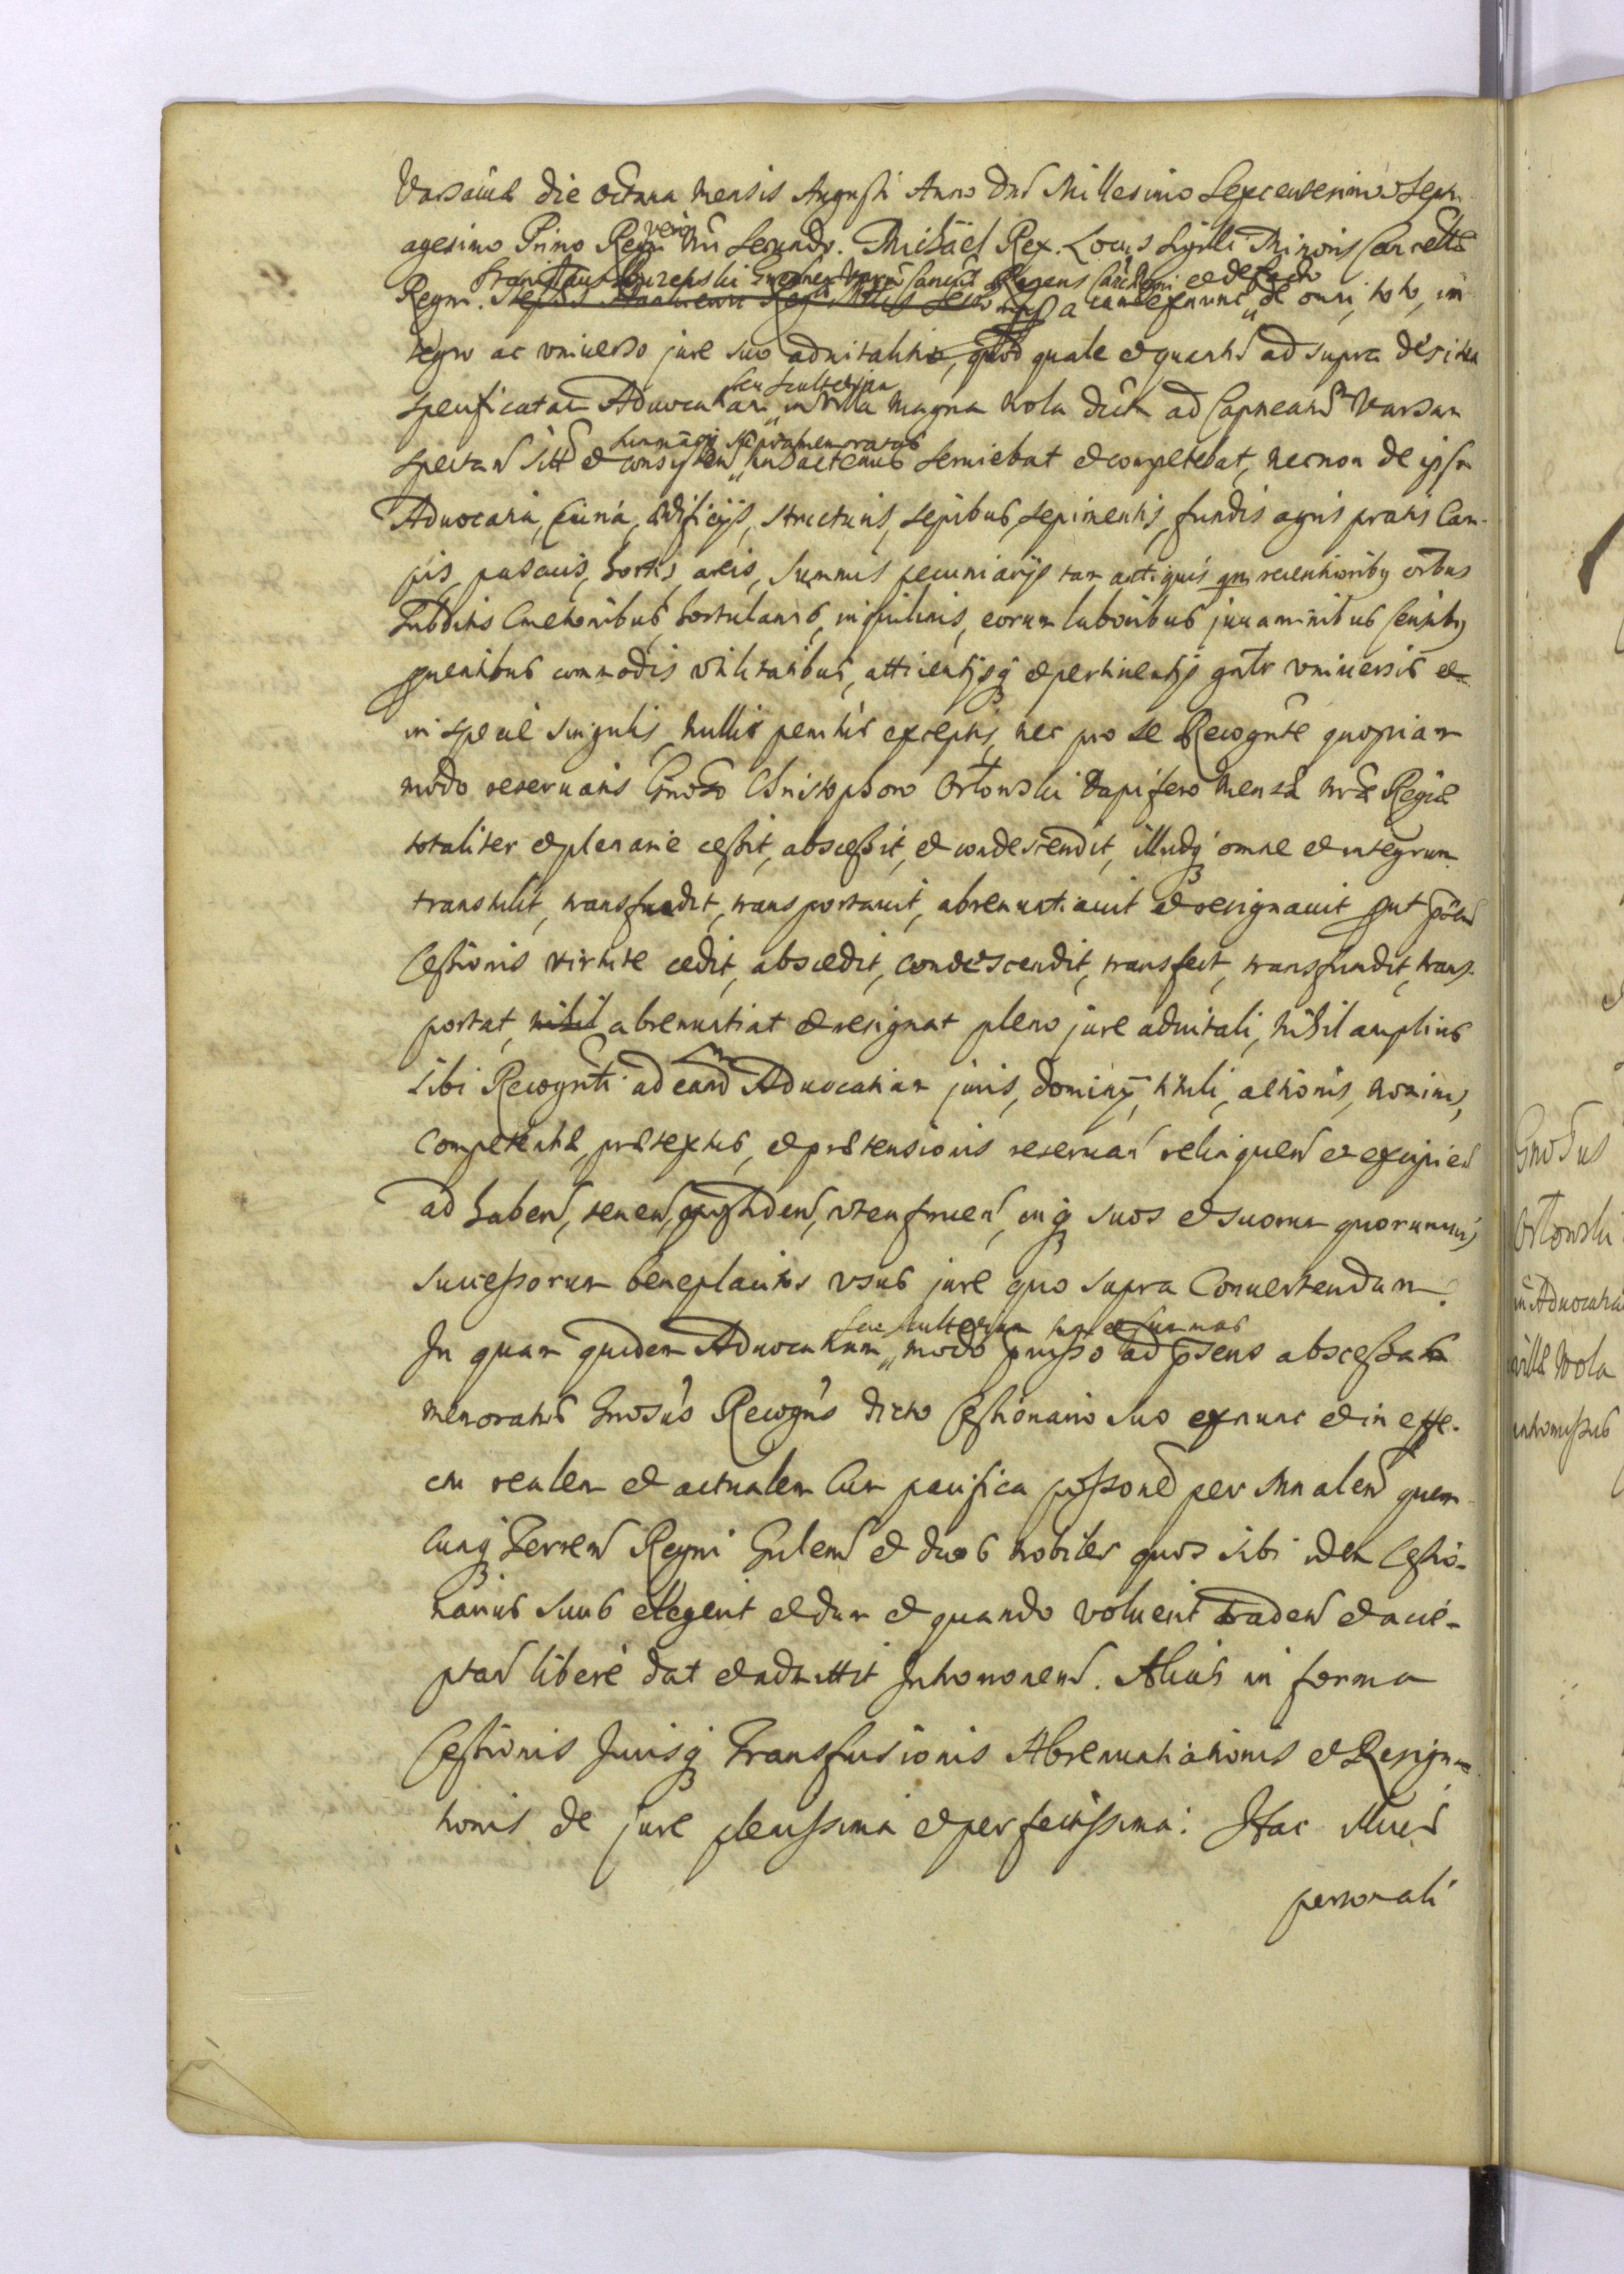 Varsaviae die octava mensis Augusti Anno Dni Millesimo Sexcentesimo Septu
agesimo Primo Regni vero Nri Secundo. Michael Rex. Locus Sigilli Minoris Cancellae
Regni. Stanislaus Buzenski Gnesnen Varm Cancus Regens Cancellariae et de facto
mpp a eandem exnunc de omni, toto, in
tegro ac universo jure suo advitalitio, quod quale et quantu ad supra descriptam
specificatam Advocatiam seu scultetiam in Villa Magna Wola dicta ad Capitaneatum Varsavien
spectan sitam et consisten, summasque supramemoratas hactenus serviebat et competebat, necnon de ipsa
Advocatia, Curia, aedificijs, structuris, sepibus, sepimentis, fundis agris pratis Cam-
pis, pascuis, hortis, areis, Summis pecuniarijs tam antiquis quam recentioribus oibus
Subditis Cmethonibus, hortulanis, inquilinis, eorum laboribus juvaminibus Censibus
proventibus commodis utilitatibus, attinentijsq et pertinentijs gnlr universis et
in specie singulis nullis penitus exceptis, nec pro se Recognte quopiam
modo reservatis Gnoso Christophoro Orłowski Dapifero Mensae nrae Regiae
totaliter et plenarie cessit, abscessit, et condescendit, illudq omne et integrum
transtulit, transfundit, transportavit, abrenuntiavit et resignavit put pnti
Cessionis virtute cedit, abscedit, condescendit, transfert, transfundit, trans-
portat, nihil abrenuntiat et resignat pleno jure advitali, nihil amplius
sibi Recognti ad eand Advocatiam juris, dominij, tituli, actionis, nominis,
competentiae, praetextus, et praetensionis reservan relinquen et excipien
ad haben, tenen, possiden, utenfruen, inq suos et suorum quorumvis
successorum beneplacitos usus jure quo supra Convertendam.
In quam quidem Advocatiam seu scultetiam hac et summas modo praemisso ad praesens abscessas
memoratus Gnosus Recogns dicto Cessionario suo exnunc et in effe-
ctu realem et actualem Cum pacifica possone per Mnalem quem
cunq Terren Regni Gnlem et duos nobiles quos sibi idem Cessio-
narius suus elegerit et dum et quando voluerit traden et acce-
ptan libere dat et admittit Intromonem. Alias in forma
Cessionis Jurisq Transfusionis Abrenuntiationis et Resigna
tionis de jure plenissima et perfectissima: Hac
personali
Gnosus
Orłowski
in Advocatia
villae Wola
intromissus